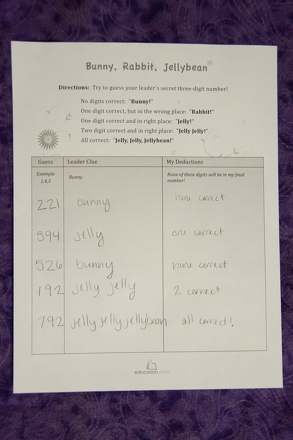 Bunny, Rabbit, Jellybean
Directions: Try to guess your leader's secret three-digit number!
No digits correct: "Bunny!"
One digit correct, but in the wrong place: "Rabbit!"
One digit correct and in right place: "Jelly!"
Two digit correct and in right place: "Jelly Jelly!"
All correct: "Jelly, Jelly, Jellybean!"
Guess Leader Clue My Deductions
Example Bunny None of these digits will be in my final
number!
221 bunny correct
594 jelly one correct
526 bunny none correct
192 jelly jelly 2 correct
792 jelly jelly jellybean all correct!
education.com